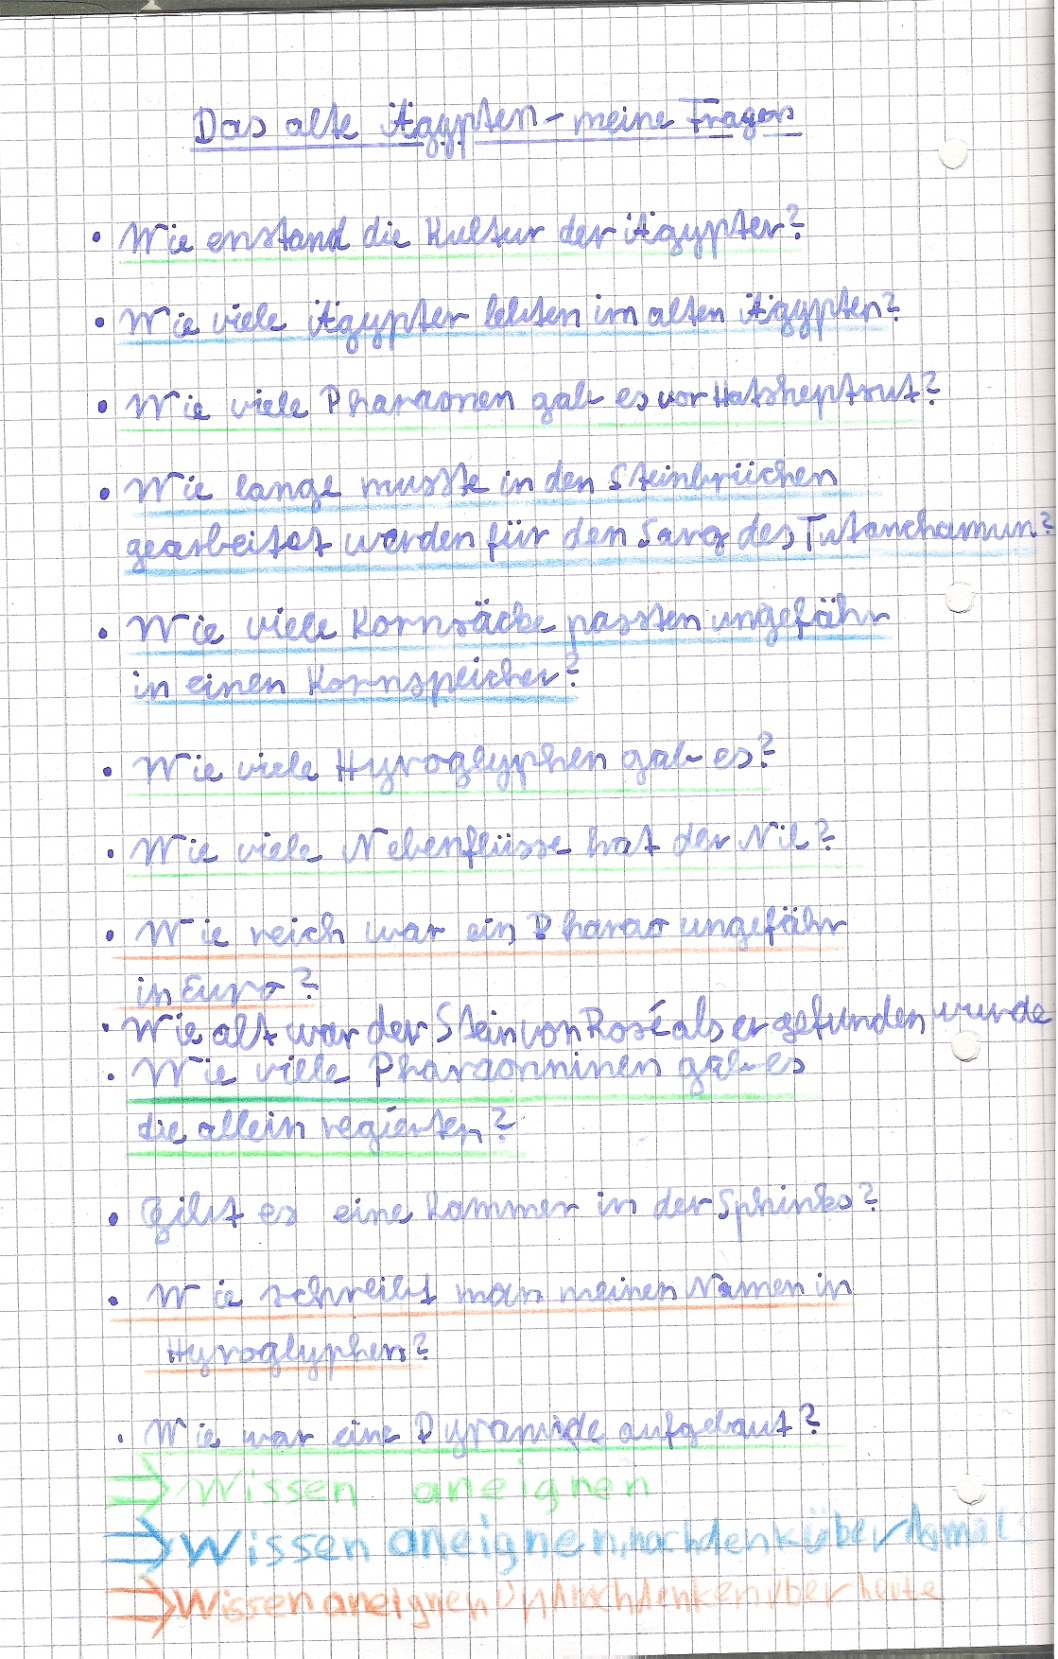 Das alte Ägypten – meine Fragen
• Wie enstand die Kultur der Ägypter?
• Wie viele Ägypter lebten im alten Ägypten?
• Wie viele Pharaonen gab es vor Hatsheptsut?
• Wie lange musste in den Steinbrüchen
gearbeitet werden für den Sarg des Tutanchamun?
• Wie viele Kornsäcke passten ungefähr
in einen Kornspeicher?
• Wie viele Hyroglyphen gab es?
• Wie viele Nebenflüsse hat der Nil?
• Wie reich war ein Pharao ungefähr
in Euro?
• Wie alt war der Stein von Rosé als er gefunden wurde
• Wie viele Pharaonninen gab es
die allein regierten?
• Gibt es eine Kammer in der Sphinks?
• Wie schreibt man meinen Namen in
Hyroglyphen?
• Wie war eine Pyramide aufgebaut?
⇒ Wissen aneignen
⇒ Wissen aneignen, nachdenk über damals
⇒ Wissen aneignen und nachdenken über heute